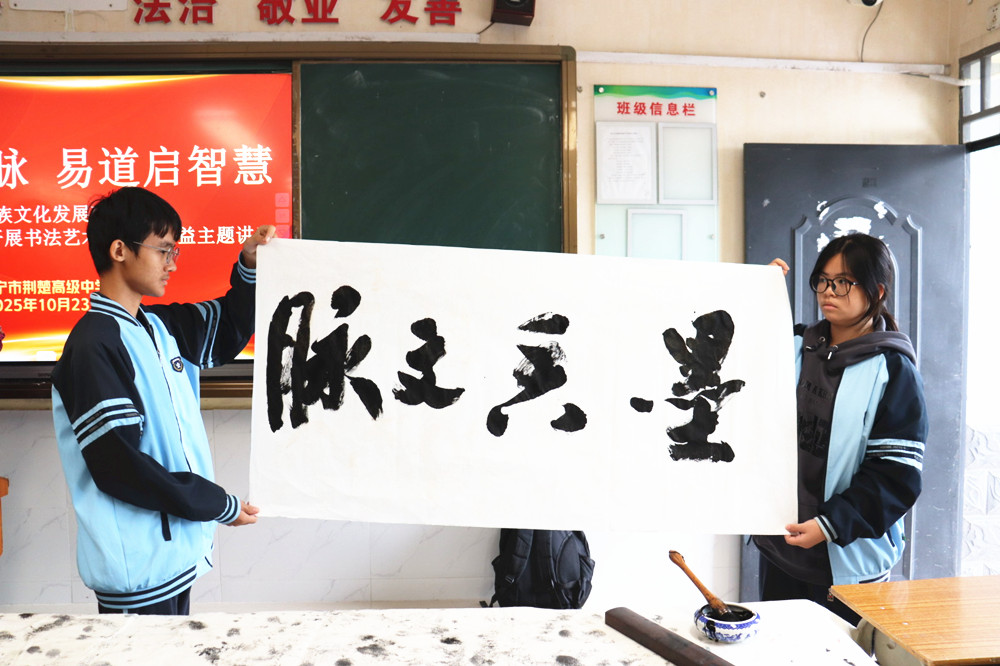 法治 敬业 友善
脉 易道启智慧
族文化发展
展书法艺 益主题讲
宁市荆楚高级中
025年10月23
班级信息栏
墨 文脉